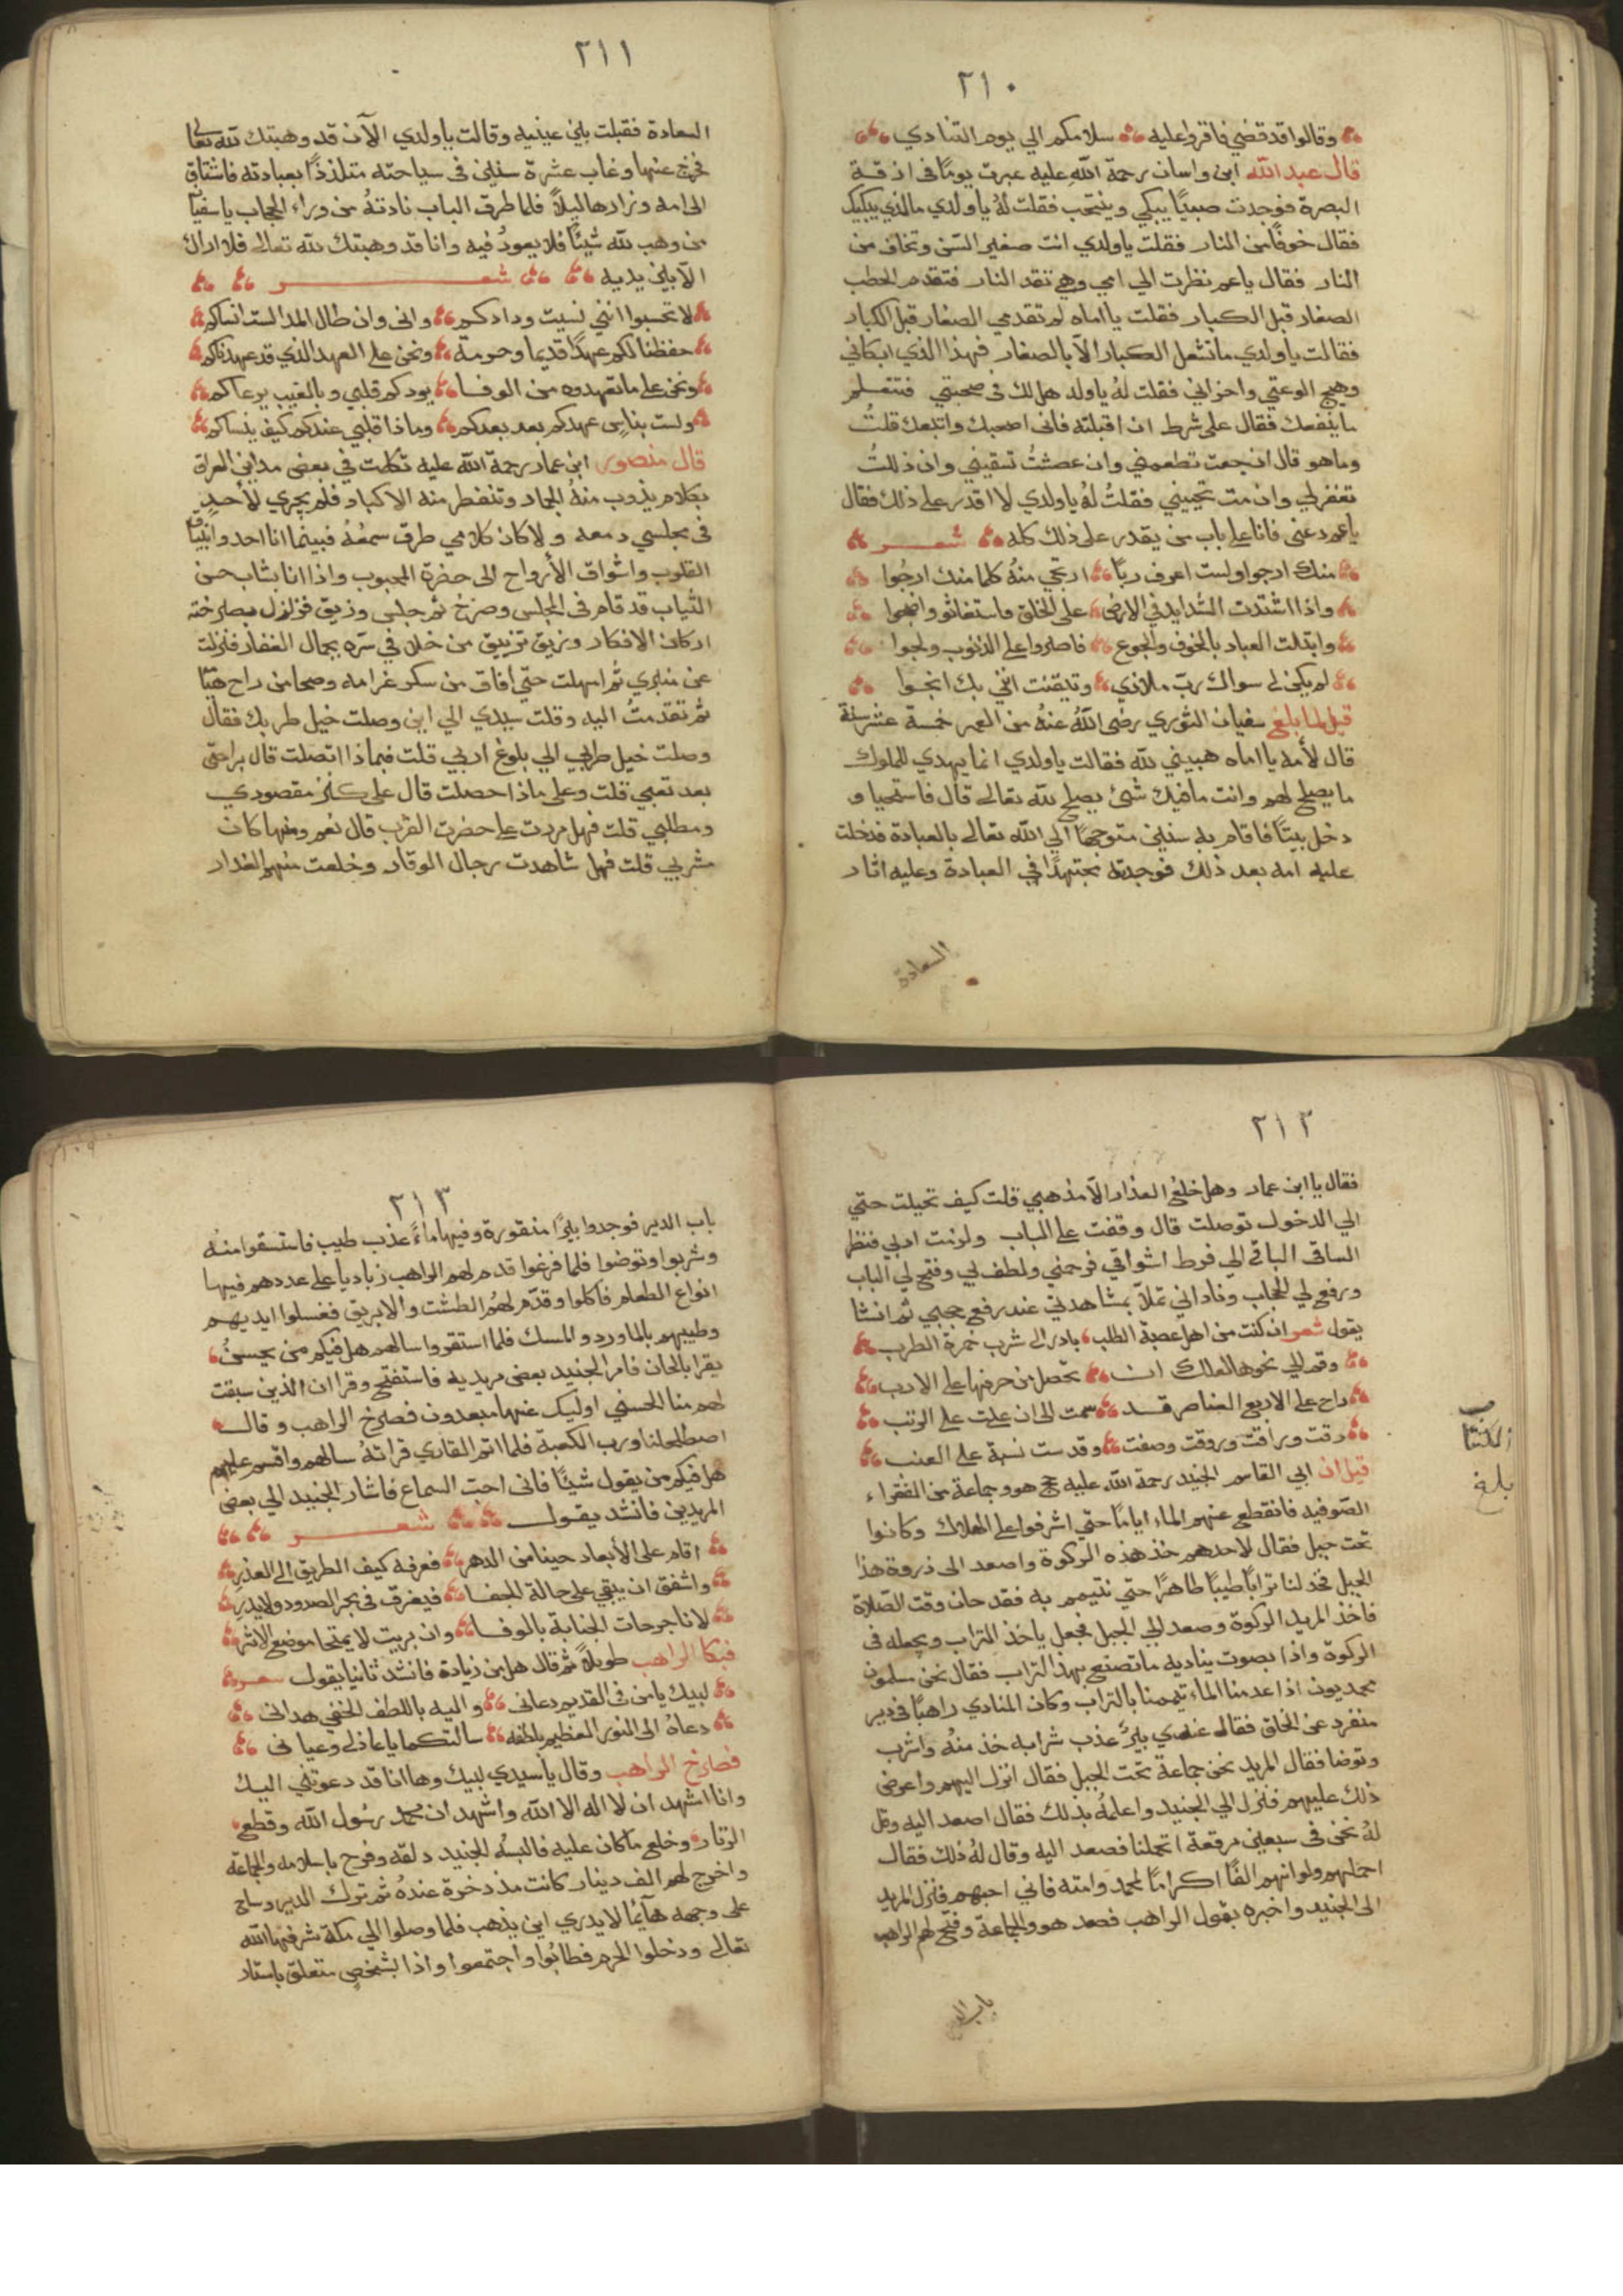 ٢١٠
وقالوا قد قضي فاقروا عليه سلامكم الي يوم التنادي
قال عبد الله ابن واسان رحمة الله عليه عبرت يومًا في ازقة
البصرة فوجدت صبيًا يبكي وينتحب فقلت لهُ يا ولدي ما الذي يبكيك
فقال خوفًا من النار فقلت يا ولدي انت صغير السن وتخاف من
النار فقال يا عم نظرت الي امي وهي تقد النار فتقدم الحطب
الصغار قبل الكبار فقلت يا اماه لم تقدمي الصغار قبل الكبار
فقالت يا ولدي ما تشعل الكبار الا بالصغار فهذا الذي ابكاني
وهيج الوعتي واحزاني فقلت لهُ يا ولد هل لك في صحبتي فتتعلم
ما ينفعك فقال على شرط ان اقبلته فاني اصحبك واتبعك قلتُ
وما هو قال ان جعت تطعمني وان عطشتُ تسقيني وان ذللتُ
تغفر لي وان مت تحييني فقلتُ لهُ يا ولدي لا اقدر على ذلك فقال
يا عم دعني فانا على باب من يقدر على ذلك كله شعر
منك ارجوا ولست اعرف ربًا ارتجي منهُ كلما منك ارجُوا
واذا اشتدت الشدايد في الارض على الخلق فاستغاثو وانجوا
وابتلت العباد بالخوف والجوع فاصروا على الذنوب ولجوا
لم يكن لي سواك ربّ ملاذي وتيقنت انني بك انجوا
قيل لما بلغ سفيان الثوري رضي الله عنهُ من العمر خمسة عشر سنة
قال لأمه يا اماه هبيني لله فقالت يا ولدي انما يهدي للملوك
ما يصلح لهم وانت ما فيك شئ يصلح لله تعالى قال فاستحيا و
دخل بيتًا فاقام به سنين متوجهًا الي الله تعالى بالعبادة فدخلت
عليه امه بعد ذلك فوجدته مجتهدًا في العبادة وعليه اثار
السعادة
٢١١
السعادة فقبلت بين عينيه وقالت يا ولدي الآن قد وهبتك لله تعالى
فخرج عنها وغاب عشرة سنين في سياحته متلذذًا بعبادته فاشتاق
الى امه وزارها ليلاً فلما طرق الباب نادتهُ من وراء الحجاب يا سفيان
من وهب لله شيئًا فلا يعودُ فيه وانا قد وهبتك لله تعالى فلا اراك
الا بين يديه شعر
لا تحسبوا انني نسيت ودادكم واني وان طال المدا لست انساكم
حفظنا لكم عهدًا قديما وحرمة ونحن على العهد الذي قد عهدناكم
ونحن على ما تعهدوه من الوفا يودكم قلبي وبالغيب يرعاكم
ولست بناسٍ عهدكم بعد بعدكم وماذا قلبي عندكم كيف ينساكم
قال منصور ابن عمار رحمة الله عليه تكلمت في بعض مداين العراق
بكلام يذوب منهُ الجماد وتنفطر منه الاكباد فلم يجري لأحدٍ
في مجلسي دمعه ولا كان كلامي طرق سمعُهُ فبينما انا احدوا نياق
القلوب واشواق الأرواح الى حضرة المحبوب واذا انا بشاب حسن
الثياب قد قام في المجلس وصرخ ثم جلس وزيق فزلزل بصرخته
اركان الافكار وزيق تزييق من خلا في سره بجمال الغفار فنزلت
عن منبري ثم امهلت حتي افاق من سكر غرامه وصحا من راح هيّا
ثم تقدمتُ اليه وقلت سيدي الي اين وصلت خيل طربك فقال
وصلت خيل طربي الي بلوغ اربي قلت فبماذا اتصلت قال براحتي
بعد تعبي قلت وعلى ماذا حصلت قال على كنز مقصودي
ومطلبي قلت فهل مررت على حضرت القرب قال نعم ومنها كان
مشربي قلت فهل شاهدت رجال الوقار وخلعت منهم العذار
٢١٢
فقال يا ابن عمار وهل خلعُ العذار الا مذهبي قلت كيف تحيلت حتي
الي الدخول توصلت قال وقفت على الباب ولزمت ادبي فنظر
الساقي الباقي الي فرط اشواقي فرحمني ولطف بي وفتح لي الباب
ورفع لي الحجاب وناداني تملا بمشاهدتي عند رفع حجبي ثم انشا
يقول شعر ان كنت من اهل عصبة الطلب بادر الى شرب خمرة الطرب
وقم الي نحوها لعلك ان تحصل من حرفها على الادب
راح على الاربع العناصر قد سمت الى ان علت على الرتب
رقت وراقت وروقت وصفت وقدست نسبة على العنب
قيل ان ابي القاسم الجنيد رحمة الله عليه حج هو وجماعة من الفقراء
الصوفيه فانقطع عنهم الماء ايامًا حتي اشرفوا على الهلاك وكانوا
تحت جبل فقال لاحدهم خذ هذه الركوة واصعد الى ذروة هذا
الجبل فخذ لنا ترابًا طيبًا طاهرًا حتي نتيمم به فقد حان وقت الصلاة
فاخذ المريد الركوة وصعد الي الجبل فجعل ياخذ التراب ويجعله في
الركوة واذا بصوت يناديه ما تصنع بهذا التراب فقال نحن مسلمون
محمديون اذا عدمنا الماء تيممنا بالتراب وكان المنادي راهبًا في دير
منفرد عن الخلق فقال عندي بئرٌ عذب شرابه خذ منهُ واشرب
وتوضا فقال المريد نحن جماعة تحت الجبل فقال انزل اليهم واعرض
ذلك عليهم فنزل الي الجنيد واعلمهُ بذلك فقال اصعد اليه وقل
لهُ نحن في سبعين مرقعة اتحملنا فصعد اليه وقال لهُ ذلك فقال
احملهم ولو انهم الفًا اكرامًا لمحمد وامته فاني احبهم فنزل المريد
الى الجنيد واخبره بقول الراهب فصعد هو والجماعة وفتح لهم الراهب
باب الدير
بلغ
٢١٣
باب الدير فوجدوا بئرًا منقورة وفيها ماءً عذب طيب فاستسقوا منه
وشربوا وتوضوا فلما فرغوا قدم لهم الراهب زباديا على عددهم فيها
انواع الطعام فاكلوا وقدّم لهمُ الطشت والابريق فغسلوا ايديهم
وطيبهم بالماورد والمسك فلما استقروا سالهم هل فيكم من يحسنُ
يقرا بالحان فامر الجنيد بعض مريديه فاستفتح وقرا ان الذين سبقت
لهم منا الحسني اوليك عنها مبعدون فصرخ الراهب وقال
اصطلحنا ورب الكعبة فلما اتم القاري قراتهُ سالهم واقسم عليهم
هل فيكم من يقول شيئًا فاني احب السماع فاشار الجنيد الي بعض
المريدين فانشد يقول شعر
اقام على الأبعاد حينا من الدهر فعرفه كيف الطريق الى العذر
واشفق ان يبقي على حالة الجفا فيغرق في بحر الصدود ولا يدري
لانا جروحات الجنابة بالوفا وان بريت لا يمتحا موضع الاثر
فبكا الراهب طويلاً ثم قال هل من زيادة فانشد ثانيا يقول شعر
لبيك يا من في القديم دعاني واليه باللطف الخفي هداني
دعاهُ الى النور العظيم بلطفه سالتكما يا عاذلي وعياني
فصرخ الراهب وقال يا سيدي لبيك وها انا قد دعوتني اليك
وانا اشهد ان لا اله الا الله واشهد ان محمد رسول الله وقطع
الزنار وخلع ما كان عليه فالبسهُ الجنيد دلقه وفرح باسلامه والجماعة
واخرج لهم الف دينار كانت مذخرة عندهُ ثم ترك الدير وساح
على وجهه هآئمًا لا يدري اين يذهب فلما وصلوا الي مكة شرفها الله
تعالى ودخلوا الحرم فطابوا واجتمعوا واذا بشخصٍ متعلق باستار